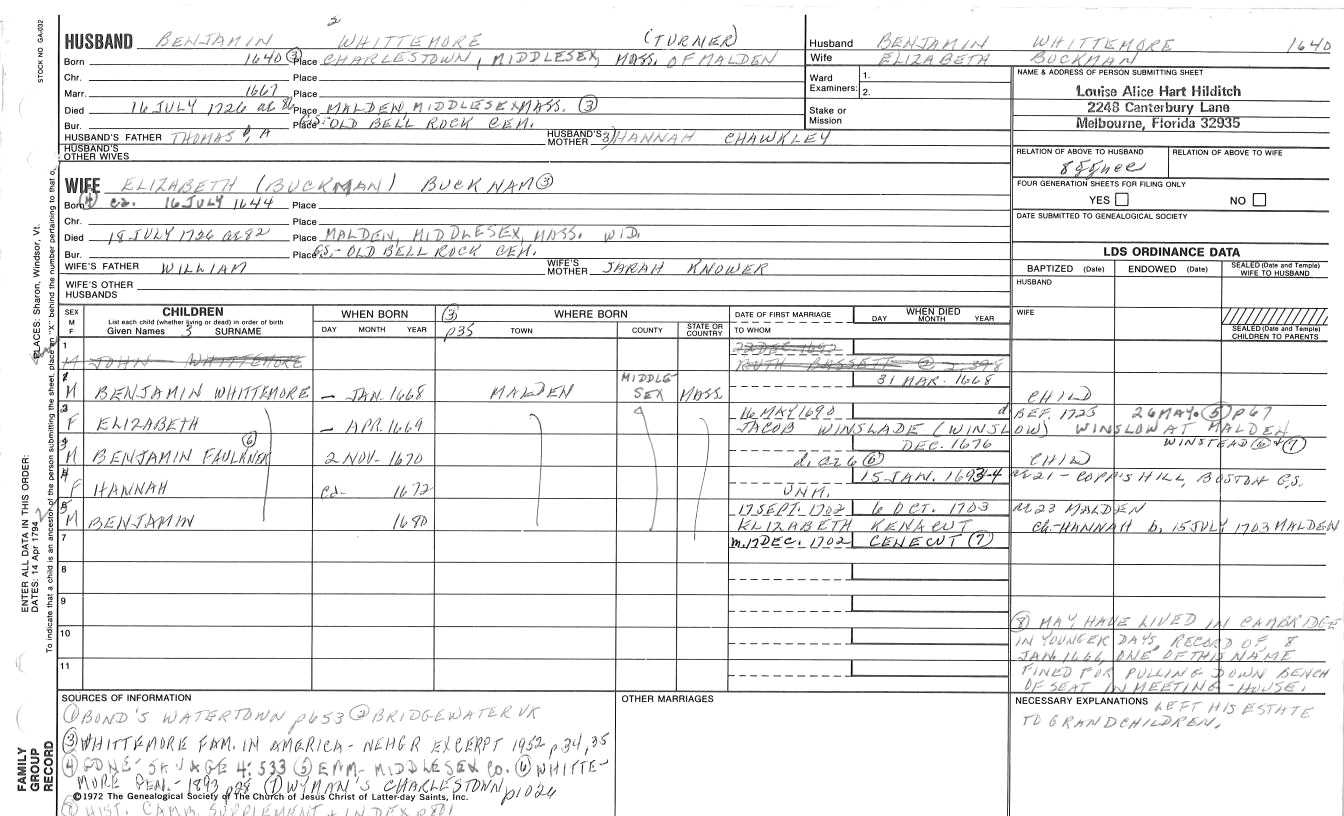 STOCK NO. GA-032
2
HUSBAND BENJAMIN WHITTEMORE (TURNER)
Born 1640 ③ Place CHARLESTOWN, MIDDLESEX, MASS. OF MALDEN
Chr. Place
Marr. 1667 Place
Died 16 JULY 1726 ae 86 Place MALDEN, MIDDLESEX MASS. ③
Bur. Place G.S.-OLD BELL ROCK CEM.
HUSBAND'S FATHER THOMAS HUSBAND'S MOTHER 3) HANNAH CHAWKLEY
HUSBAND'S OTHER WIVES
WIFE ELIZABETH (BUCKMAN) BUCKNAM ③
Born ④ ca. 16 JULY 1644 Place
Chr. Place
Died 18 JULY 1726 ae 82 Place MALDEN, MIDDLESEX, MASS. WID.
Bur. Place G.S.-OLD BELL ROCK CEM.
WIFE'S FATHER WILLIAM WIFE'S MOTHER SARAH KNOWER
WIFE'S OTHER HUSBANDS
Husband BENJAMIN WHITTEMORE 1640
Wife ELIZABETH BUCKMAN
Ward Examiners: 1.
2.
Stake or Mission
NAME & ADDRESS OF PERSON SUBMITTING SHEET
Louise Alice Hart Hilditch
2248 Canterbury Lane
Melbourne, Florida 32935
RELATION OF ABOVE TO HUSBAND RELATION OF ABOVE TO WIFE
FOUR GENERATION SHEETS FOR FILING ONLY
YES NO
DATE SUBMITTED TO GENEALOGICAL SOCIETY
LDS ORDINANCE DATA
BAPTIZED (Date) ENDOWED (Date) SEALED (Date and Temple) WIFE TO HUSBAND
HUSBAND
WIFE
SEALED (Date and Temple) CHILDREN TO PARENTS
SEX M F
CHILDREN
List each child (whether living or dead) in order of birth
Given Names 3 SURNAME
WHEN BORN
DAY MONTH YEAR
③ p35 WHERE BORN
TOWN COUNTY STATE OR COUNTRY
DATE OF FIRST MARRIAGE
TO WHOM
WHEN DIED
DAY MONTH YEAR
1 M JOHN WHITTEMORE 22 DEC. 1692
RUTH BASSETT ② 2,398
M BENJAMIN WHITTEMORE - JAN. 1668 MALDEN MIDDLESEX MASS. 31 MAR. 1668 CHILD
F ELIZABETH - APR. 1669 16 MAY 1690 d BEF. 1725 26 MAY. ⑤ p67
JACOB WINSLADE (WINSLOW) WINSLOW AT MALDEN
WINSTEAD ⑥ & ⑦
3 M BENJAMIN FAULKNER ⑥ 2 NOV- 1670 DEC. 1676
d. ca 6 ⑥ CHILD
4 F HANNAH ca- 1672 15 JAN. 1693-4 ae 21 - COPP'S HILL, BOSTON G.S.
UNM.
5 M BENJAMIN 1680 17 SEPT. 1702 6 OCT. 1703 ae 23 MALDEN
ELIZABETH KENACUT ch-HANNAH b. 15 JULY 1703 MALDEN
7 m. 17 DEC. 1702 CENECUT ⑦
8
9
10
11
⑧ MAY HAVE LIVED IN CAMBRIDGE
IN YOUNGER DAYS. RECORD OF 8
JAN 1666, ONE OF THIS NAME
FINED FOR PULLING DOWN BENCH
OF SEAT IN MEETING-HOUSE.
SOURCES OF INFORMATION
① BOND'S WATERTOWN p653 ② BRIDGEWATER VR
③ WHITTEMORE FAM. IN AMERICA - NEHGR EXCERPT 1952 p34,35
④ SAVAGE 4:533 ⑤ EPM- MIDDLESEX CO. ⑥ WHITTE-
MORE GEN.- 1893 p28 ⑦ WYMAN'S CHARLESTOWN p1026
©1972 The Genealogical Society of The Church of Jesus Christ of Latter-day Saints, Inc.
⑧ HIST. CAMB. SUPPLEMENT & INDEX
OTHER MARRIAGES
NECESSARY EXPLANATIONS LEFT HIS ESTATE
TO GRANDCHILDREN.
ENTER ALL DATA IN THIS ORDER:
DATES: 14 Apr 1794
PLACES: Sharon, Windsor, Vt.
To indicate that a child is an ancestor of the person submitting the sheet, place an "X" behind the number pertaining to that
FAMILY GROUP RECORD